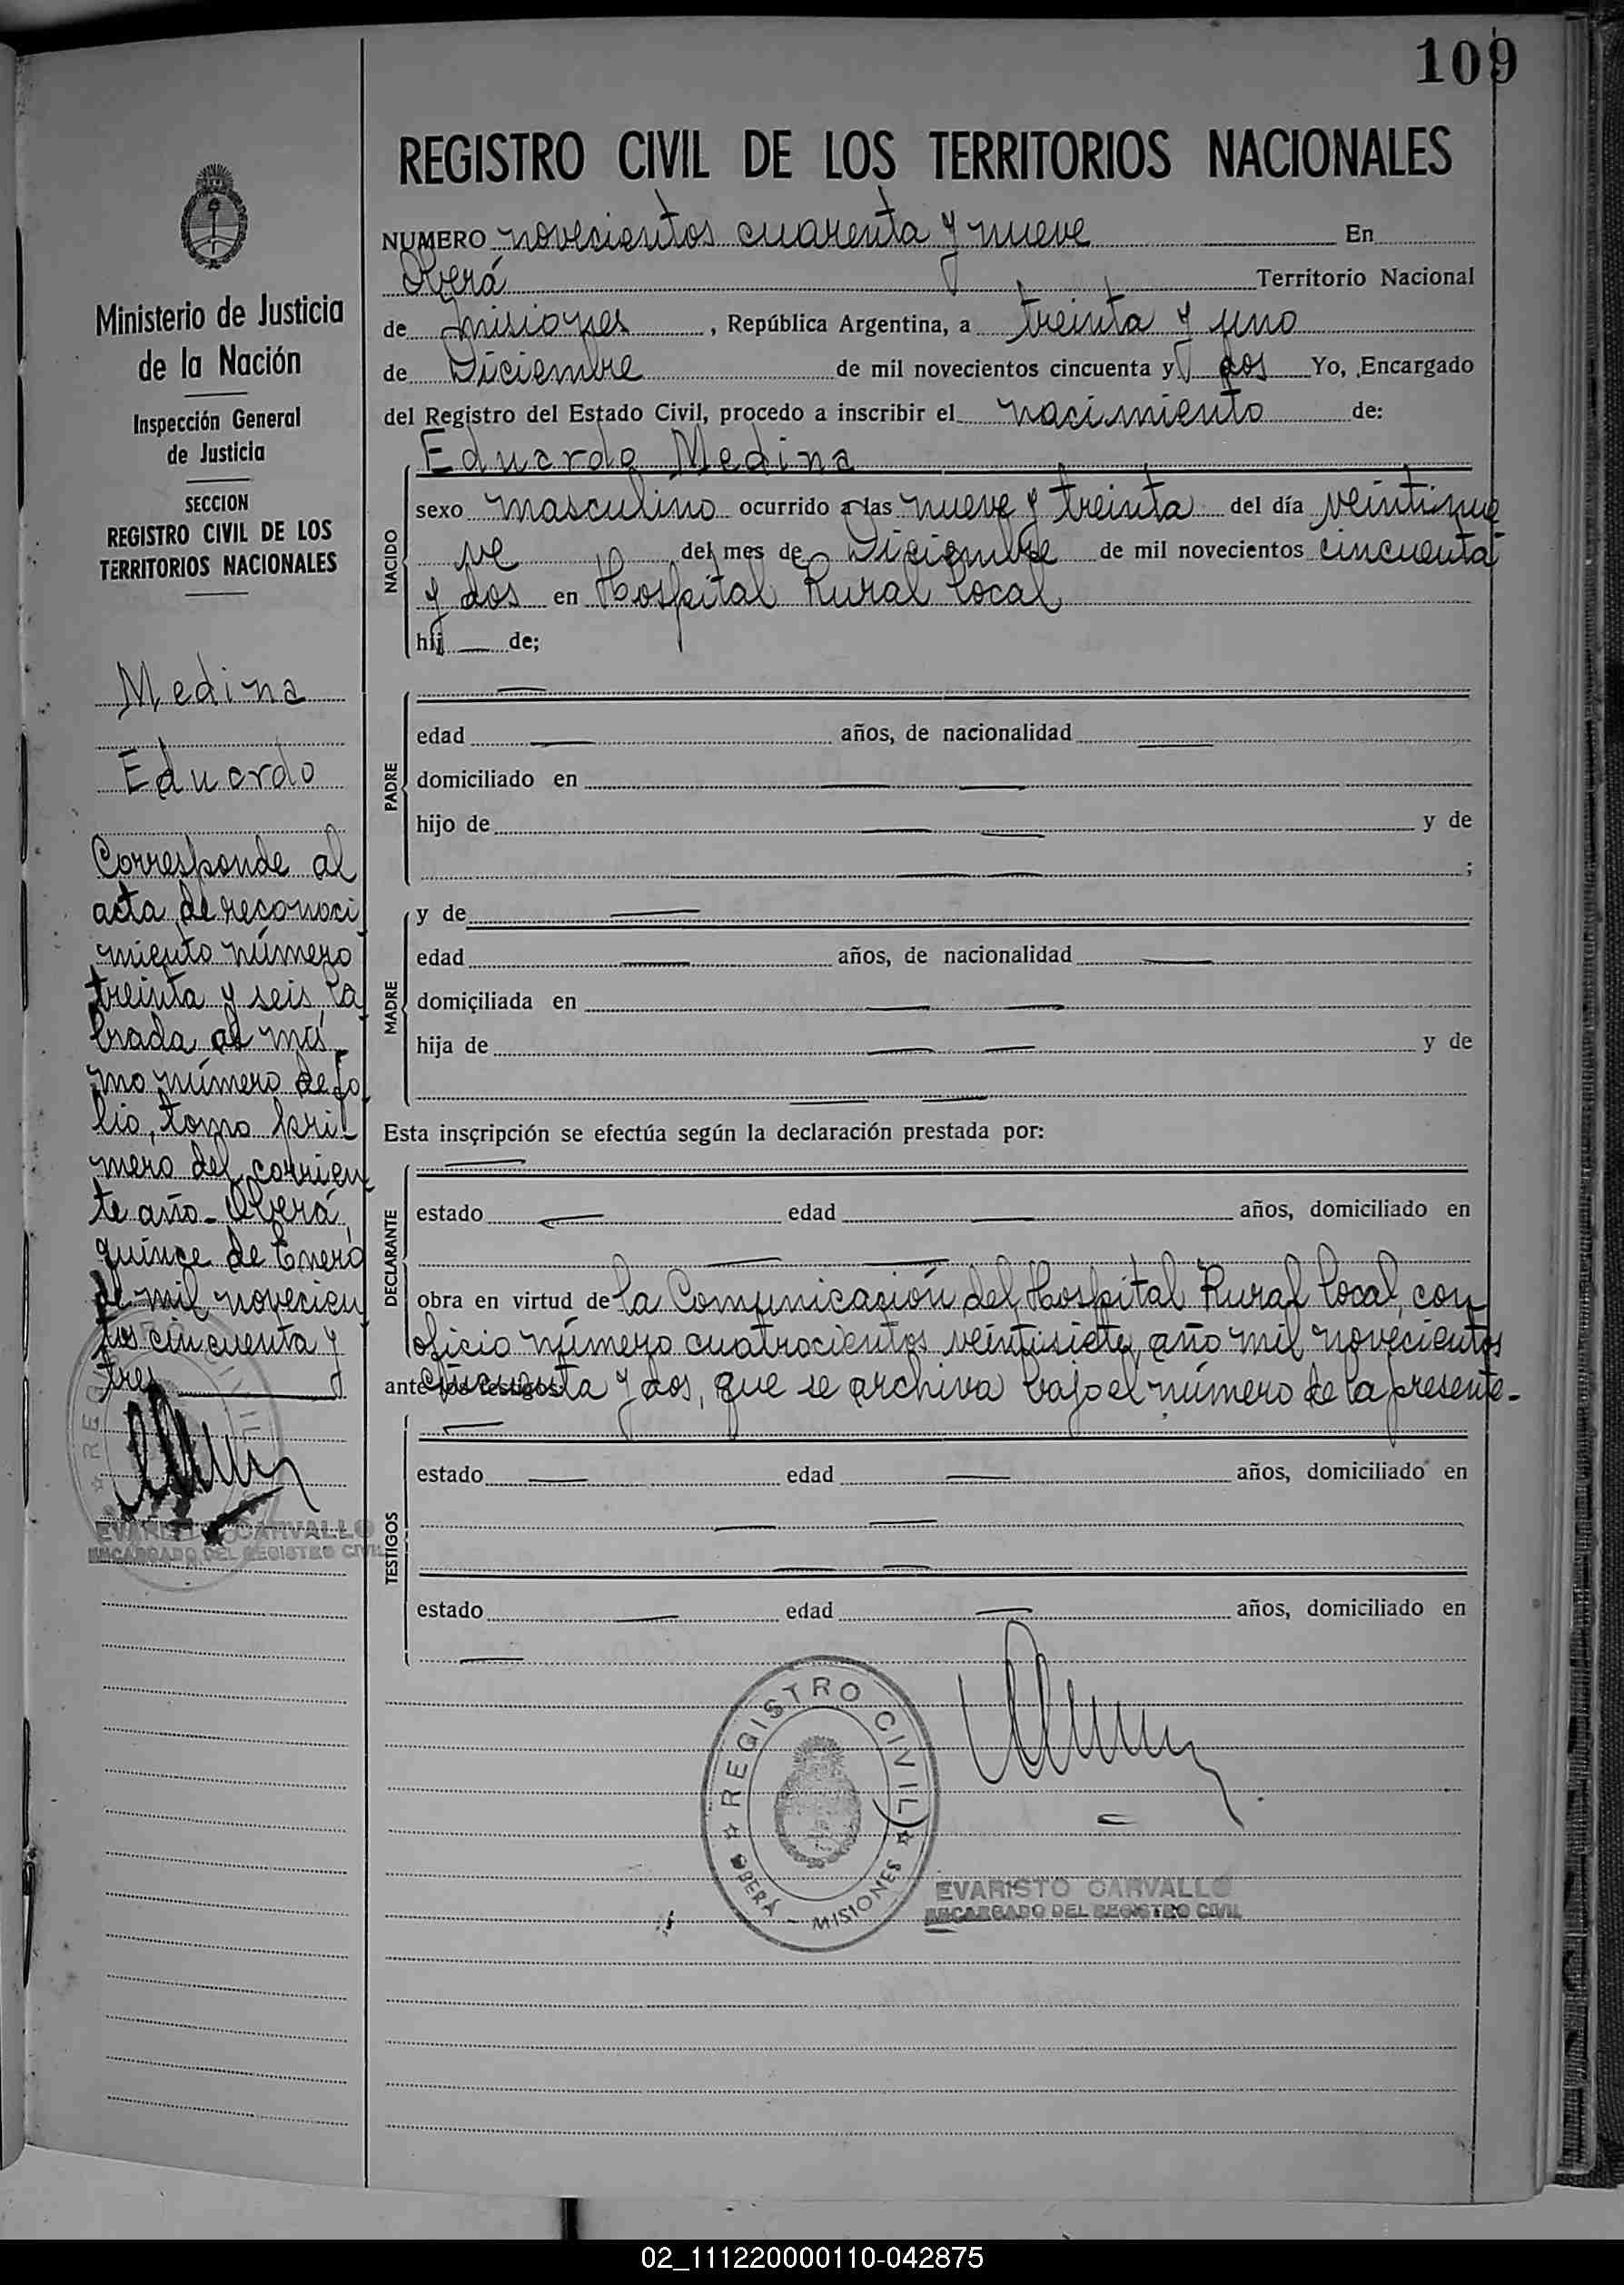 109
REGISTRO CIVIL DE LOS TERRITORIOS NACIONALES
NUMERO novecientos cuarenta y nueve En
Oberá Territorio Nacional
de Misiones, República Argentina, a treinta y uno
de Diciembre de mil novecientos cincuenta y dos Yo, Encargado
del Registro del Estado Civil, procedo a inscribir el nacimiento de:
Eduardo Medina
NACIDO
sexo masculino ocurrido a las nueve y treinta del día veintinue
ve del mes de Diciembre de mil novecientos cincuenta
y dos en Hospital Rural Local
hij de;
PADRE
edad años, de nacionalidad
domiciliado en
hijo de y de
;
MADRE
y de
edad años, de nacionalidad
domiciliada en
hija de y de
Esta inscripción se efectúa según la declaración prestada por:
DECLARANTE
estado edad años, domiciliado en
obra en virtud de la Comunicación del Hospital Rural Local, con
oficio número cuatrocientos veintisiete, año mil novecientos
ante los testigos: cincuenta y dos, que se archiva bajo el número de la presente-
TESTIGOS
estado edad años, domiciliado en
estado edad años, domiciliado en
REGISTRO CIVIL
OBERÁ - MISIONES
EVARISTO CARVALLO
ENCARGADO DEL REGISTRO CIVIL
Ministerio de Justicia
de la Nación
Inspección General
de Justicia
SECCION
REGISTRO CIVIL DE LOS
TERRITORIOS NACIONALES
Medina
Eduardo
Corresponde al
acta de reconoci
miento número
treinta y seis, la
brada al mis
mo número de fo
lio, tomo pri-
mero del corrien
te año- Oberá,
quince de Enero
de mil novecien
tos cincuenta y
tres
EVARISTO CARVALLO
ENCARGADO DEL REGISTRO CIVIL
02_111220000110-042875